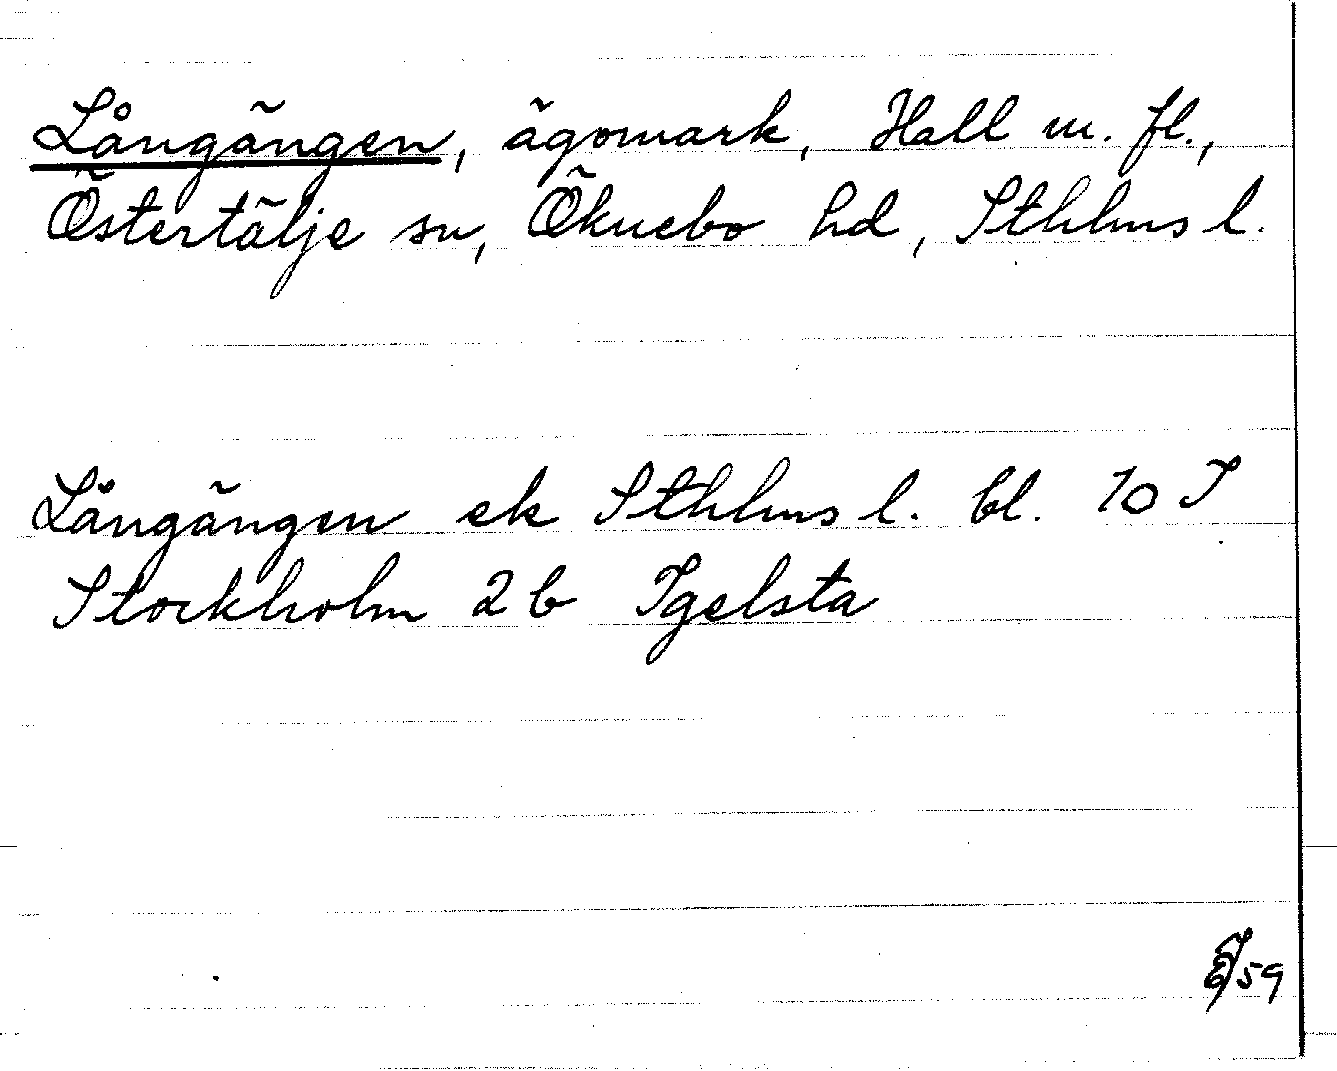 Långängen, ägomark, Hall m. fl.,
Östertälje sn, Öknebo hd, Sthlms l.
Långängen ek Sthlms l. bl. 70 I
Stockholm 2b Igelsta
59